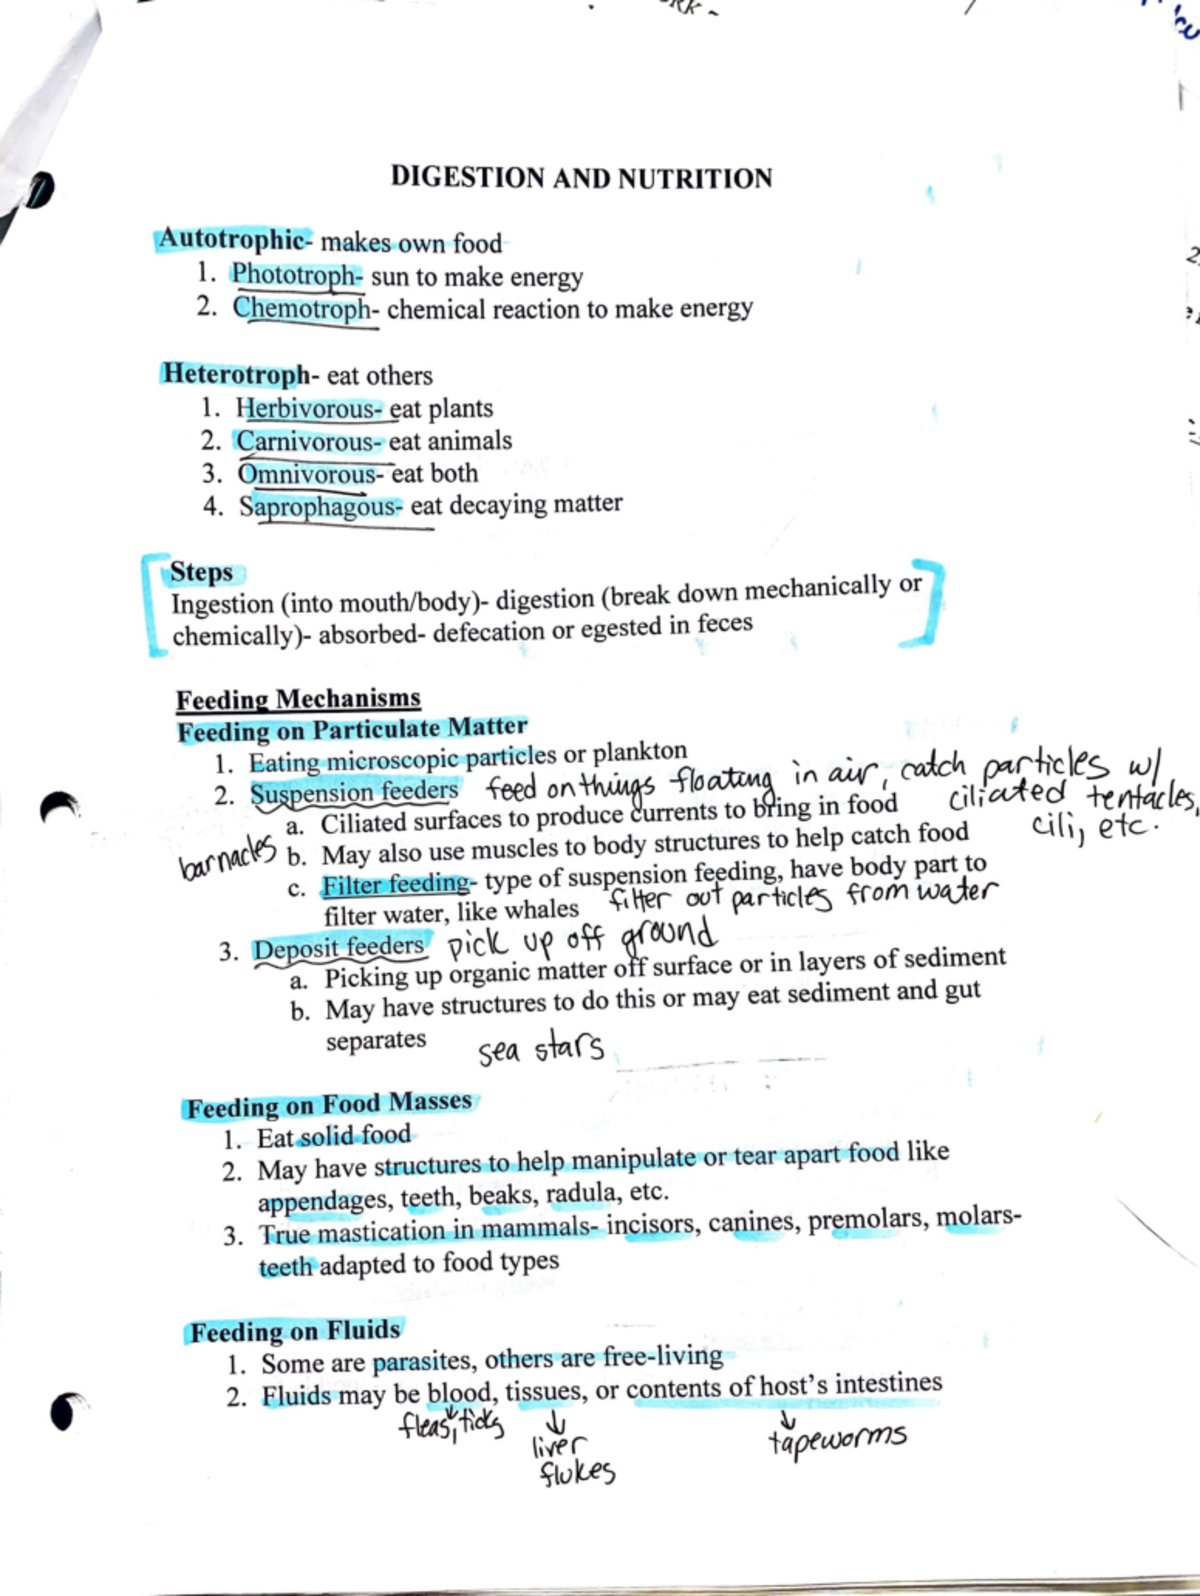 DIGESTION AND NUTRITION
Autotrophic- makes own food
1. Phototroph- sun to make energy
2. Chemotroph- chemical reaction to make energy
Heterotroph- eat others
1. Herbivorous- eat plants
2. Carnivorous- eat animals
3. Omnivorous- eat both
4. Saprophagous- eat decaying matter
Steps
Ingestion (into mouth/body)- digestion (break down mechanically or
chemically)- absorbed- defecation or egested in feces
Feeding Mechanisms
Feeding on Particulate Matter
1. Eating microscopic particles or plankton
2. Suspension feeders feed on things floating in air, catch particles w/
ciliated tentacles,
cili, etc.
a. Ciliated surfaces to produce currents to bring in food
barnacles
b. May also use muscles to body structures to help catch food
c. Filter feeding- type of suspension feeding, have body part to
filter water, like whales filter out particles from water
3. Deposit feeders pick up off ground
a. Picking up organic matter off surface or in layers of sediment
b. May have structures to do this or may eat sediment and gut
separates sea stars
Feeding on Food Masses
1. Eat solid food
2. May have structures to help manipulate or tear apart food like
appendages, teeth, beaks, radula, etc.
3. True mastication in mammals- incisors, canines, premolars, molars-
teeth adapted to food types
Feeding on Fluids
1. Some are parasites, others are free-living
2. Fluids may be blood, tissues, or contents of host's intestines
fleas, ticks
liver
flukes
tapeworms